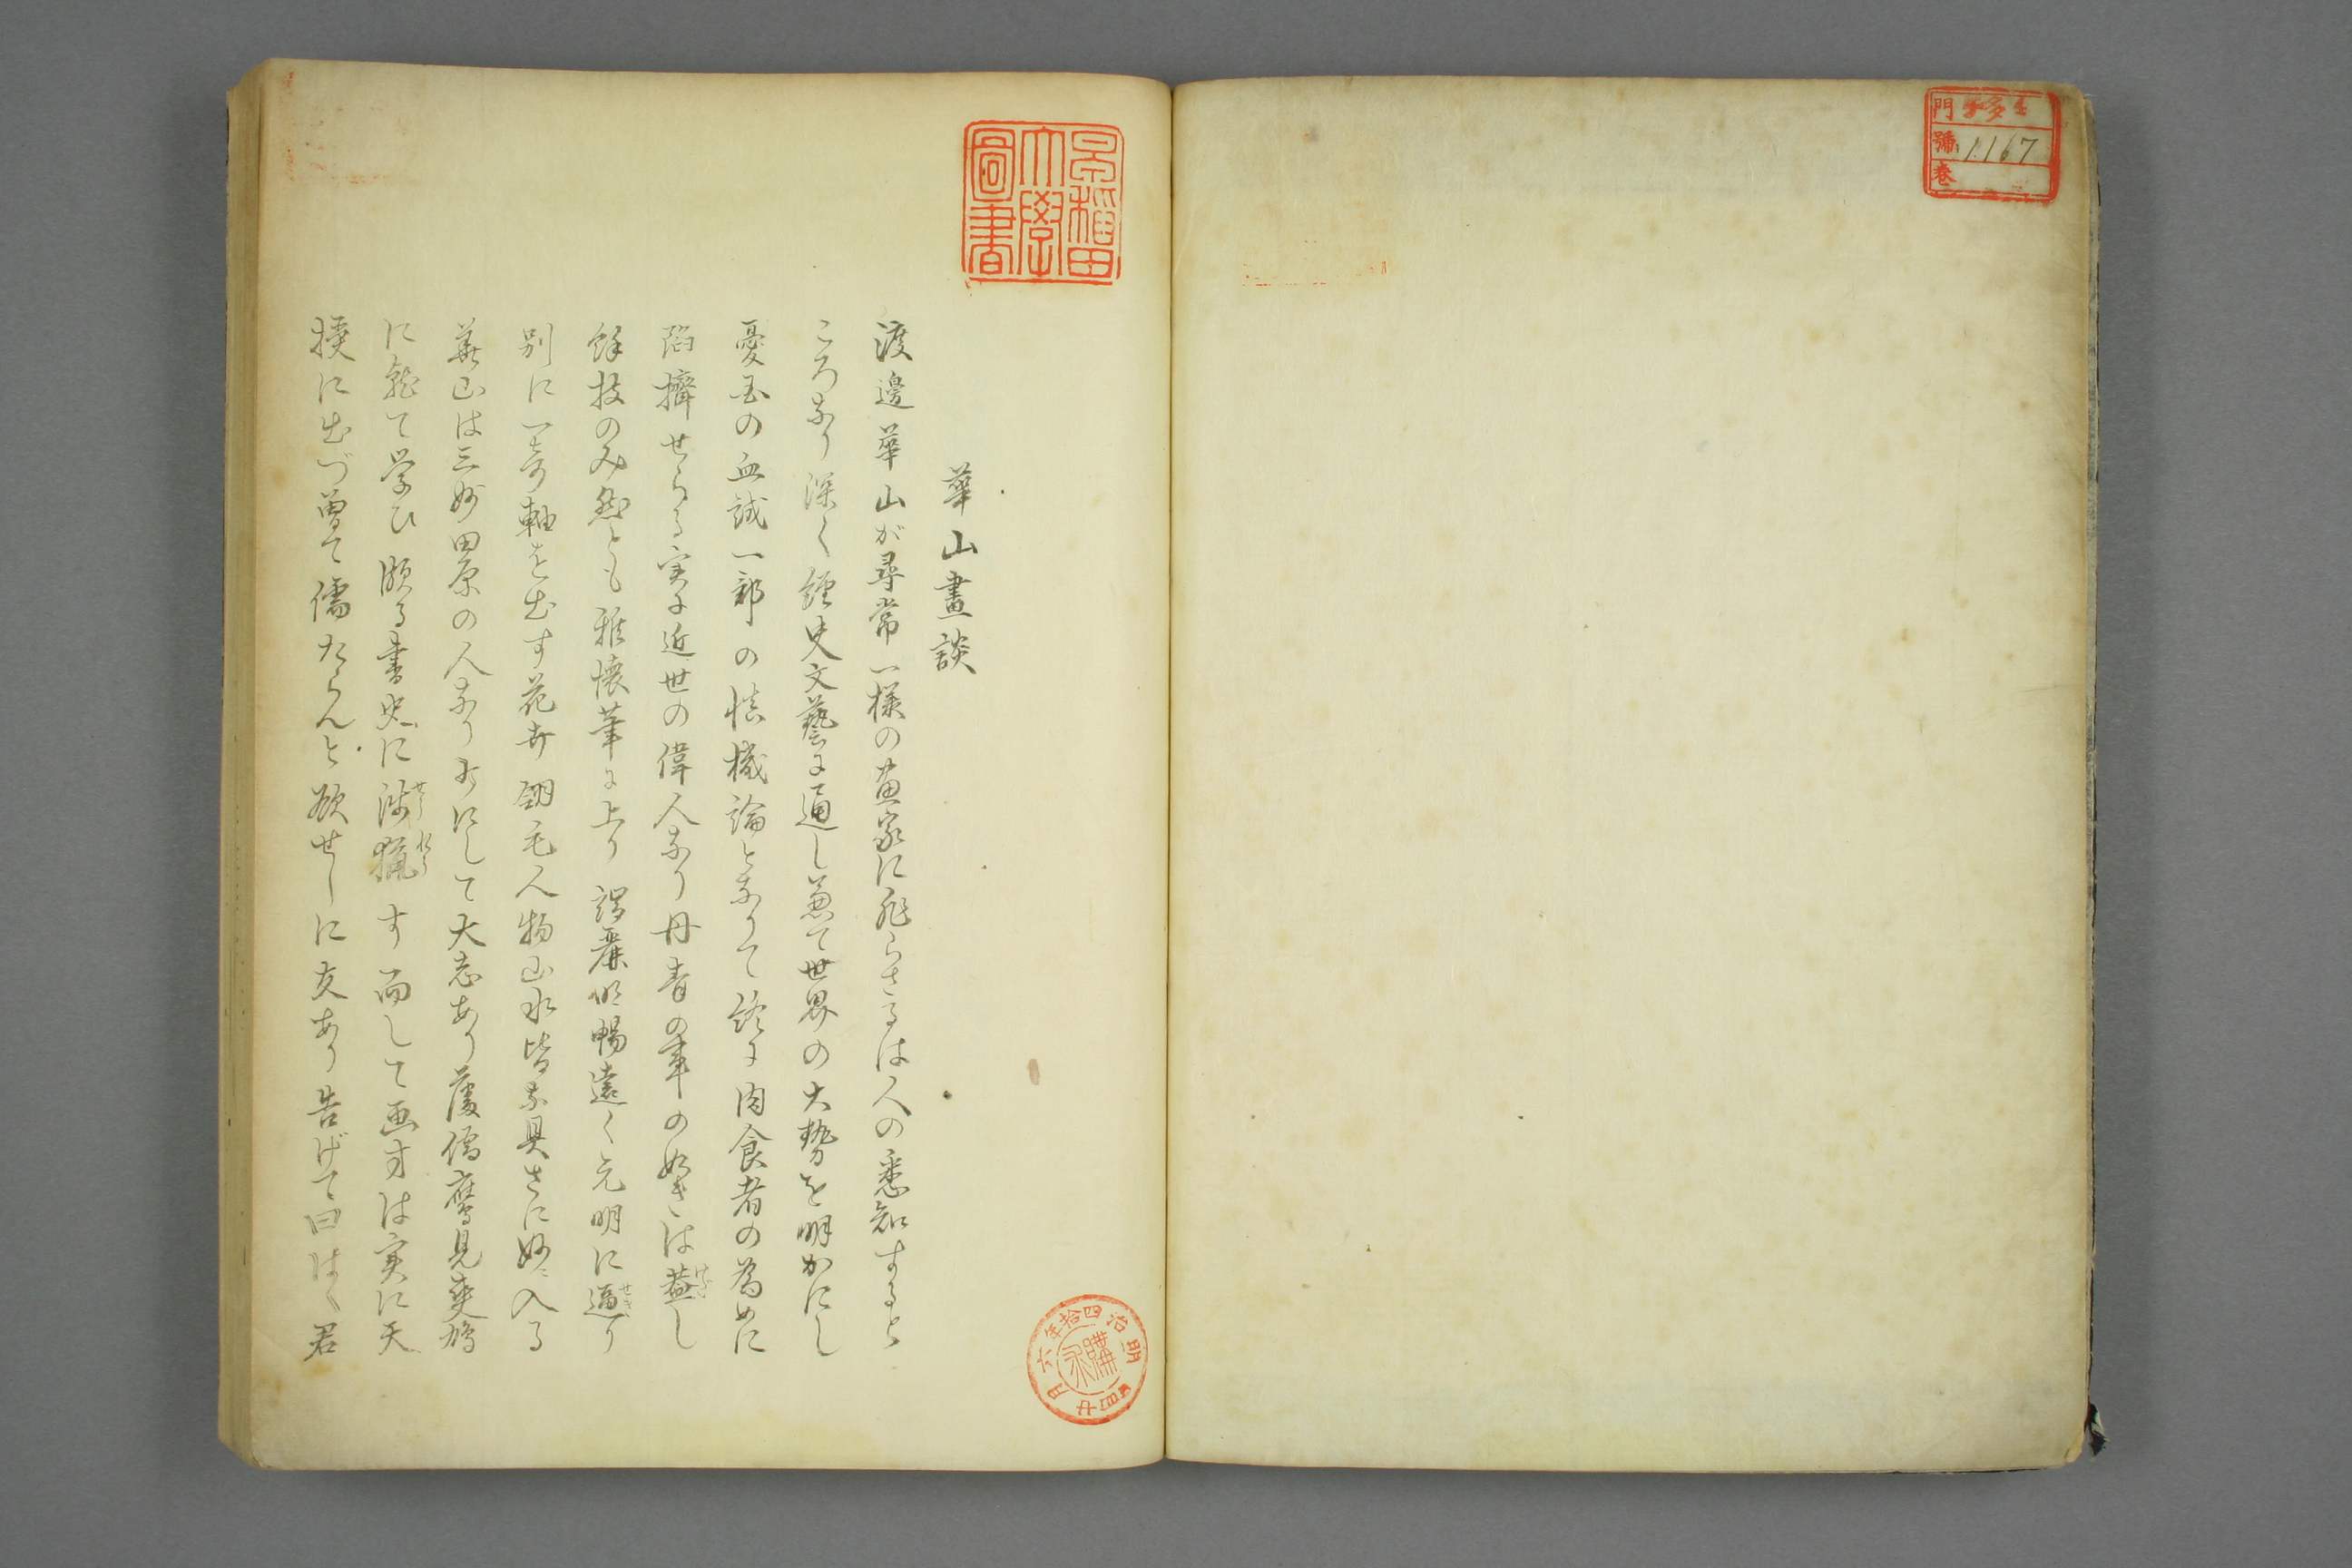 門
號 1167
卷
早稲田大學圖書
華山畫談
渡邊華山が尋常一様の画家に非らさるは人の悉知すると
ころなり深く経史文藝に通し兼て世界の大勢を明かにし
憂国の血誠一部の慎機論となりて終に肉食者の為めに
陥擠せらる実に近世の偉人なり丹青の事の如きは蓋し
餘技のみ然とも雅懐筆に上り 麗明暢遠く元明に逼り
別に一奇軸を出す花卉翎毛人物山水皆な具さに妙に入る
華山は三 田原の人なり にして大志あり藩儒鷹見爽鳩
に就て学ひ頗る書史に渉猟す而して画才は実に天
授に出づ曽て儒たらんと欲せしに友あり告げて曰はく君
明治四拾年六月廿 日
購求